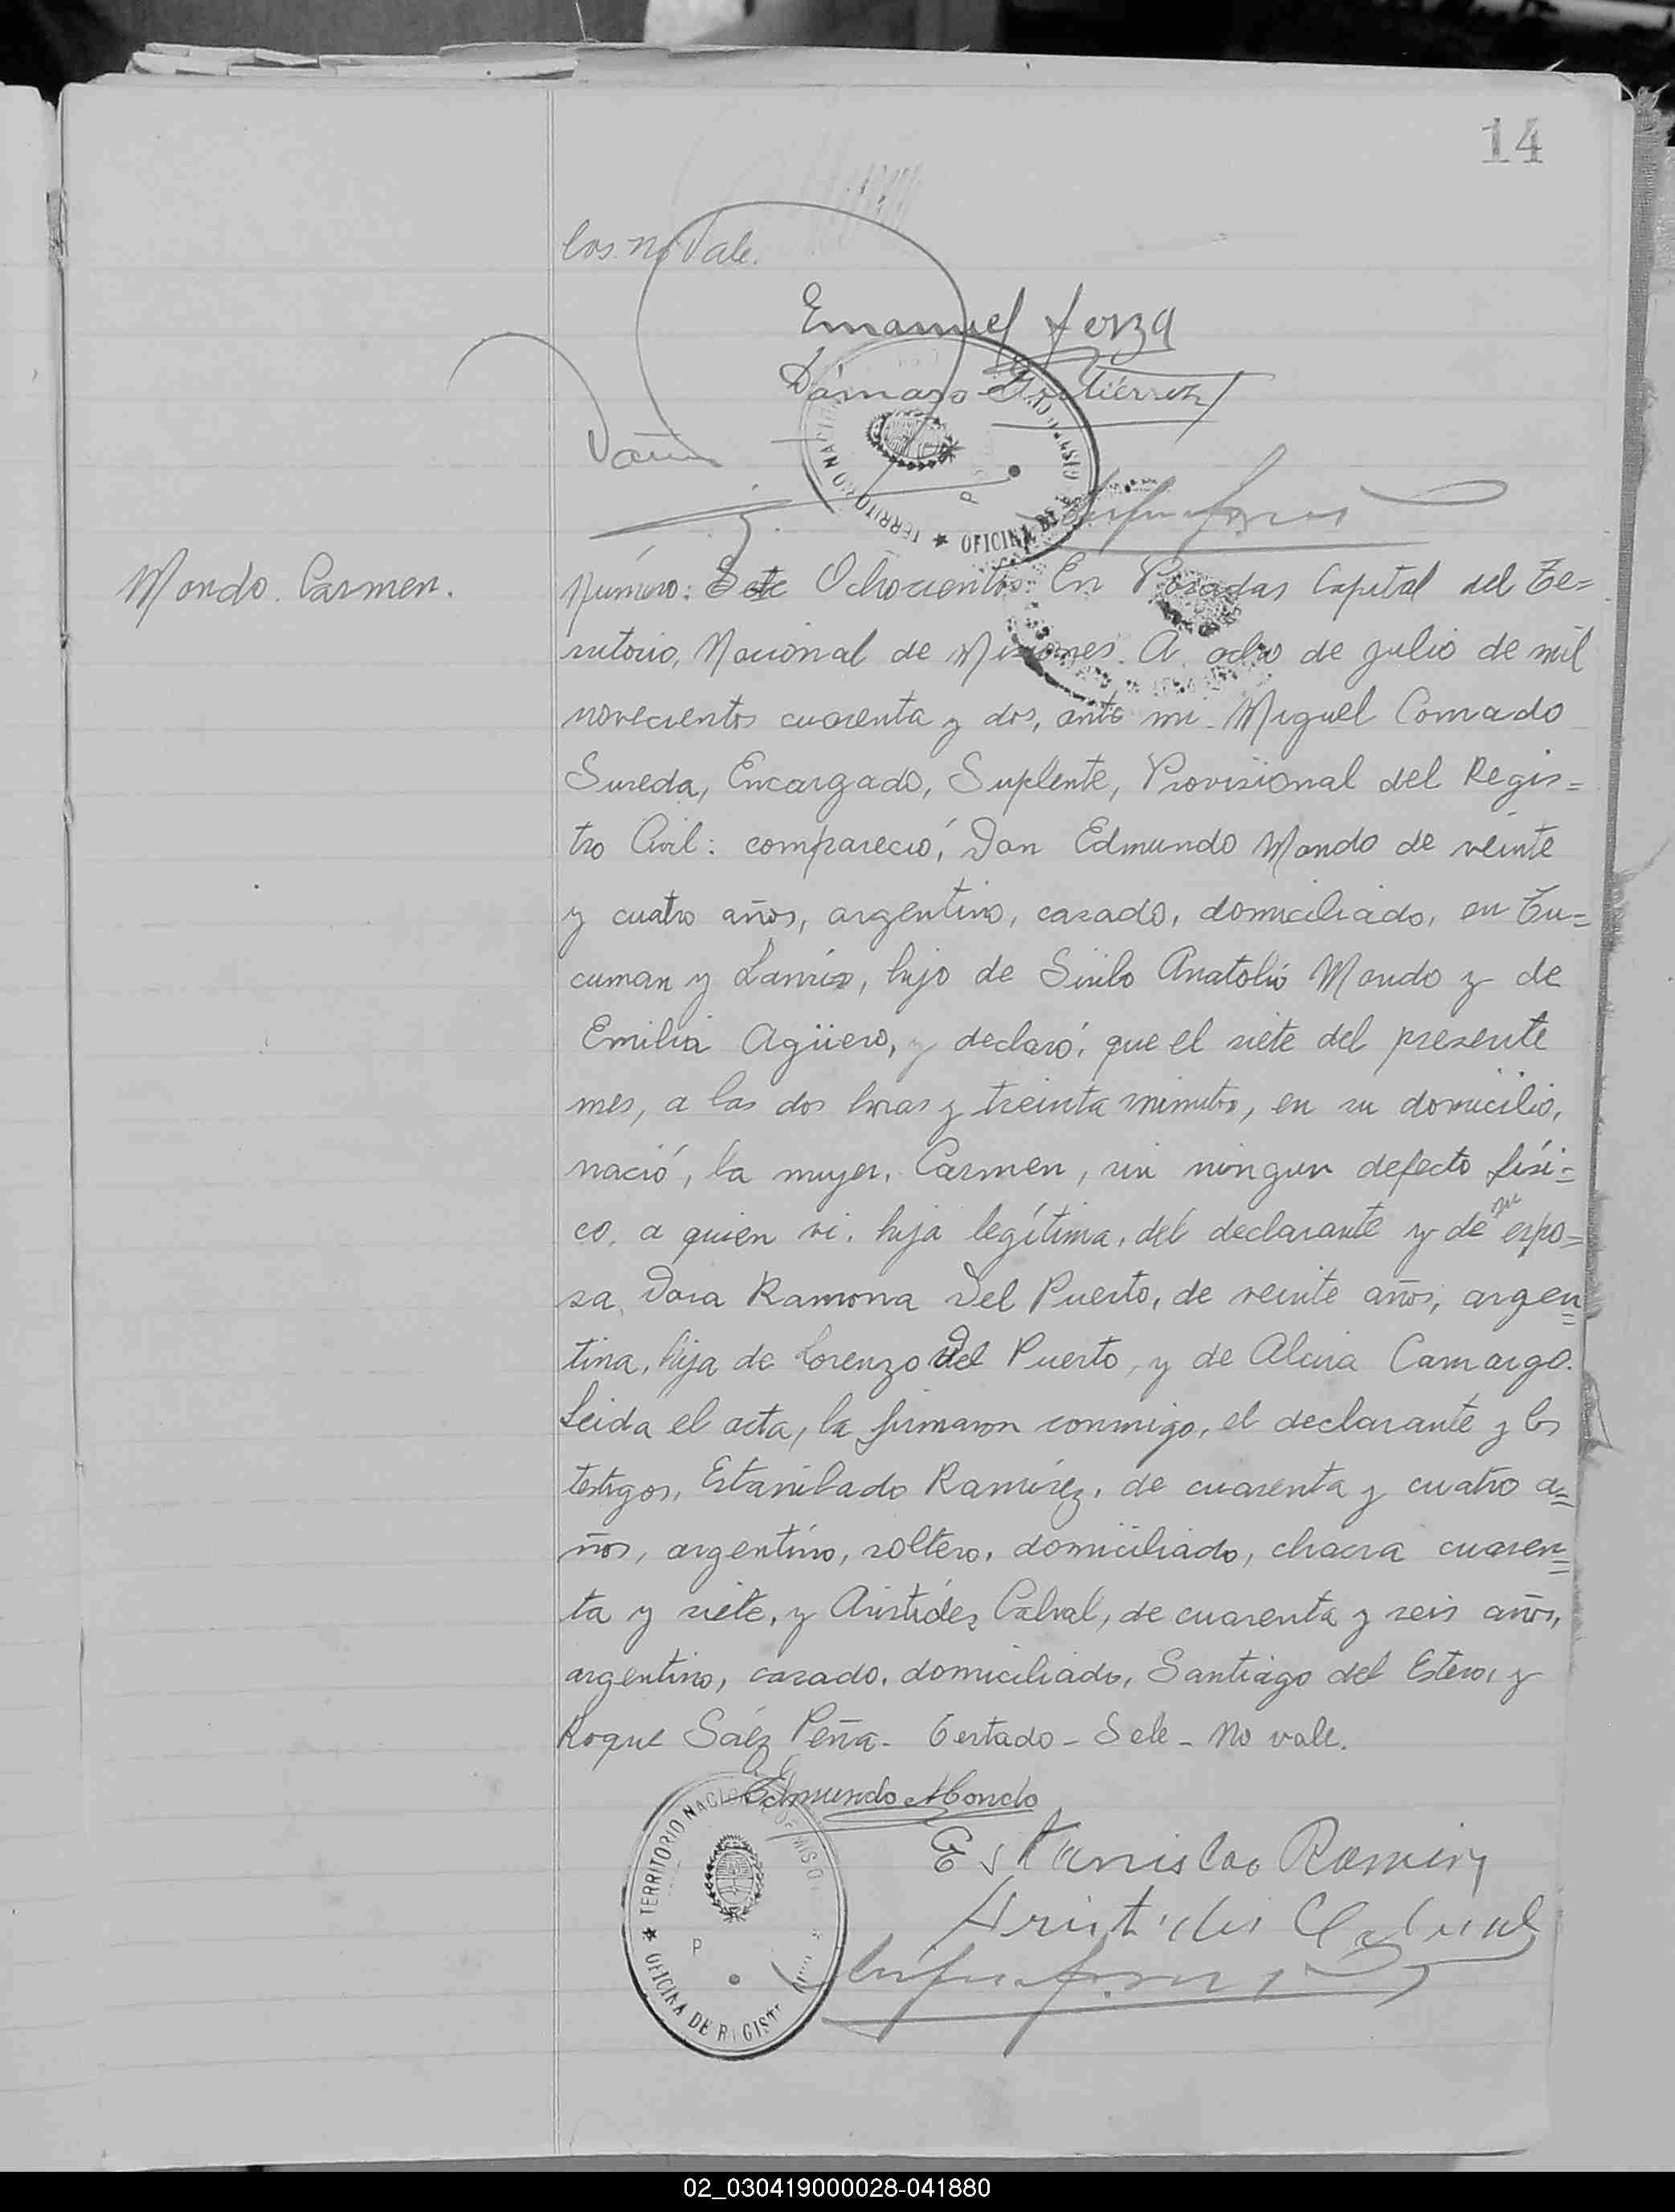 14
los. no vale.
Emanuel
Dámaso Gutiérrez
TERRITORIO NACIO
OFICINA DE
Mondo. Carmen.
Número: Sete Ochocientos. En Posadas Capital del Te=
rritorio, Nacional de Misiones. A. ocho de julio de mil
novecientos cuarenta y dos, ante mi. Miguel Conrado
Sureda, Encargado, Suplente, Provisional del Regis=
tro Civil: compareció, Don Edmundo Mondo de veinte
y cuatro años, argentino, casado, domiciliado, en Tu=
cuman y, hijo de Anatolio Mondo y de
Emilia Agüero, y declaró, que el siete del presente
mes, a las dos horas y treinta minutos, en su domicilio,
nació, la mujer, Carmen, sin ningun defecto físi=
co, a quien vi. hija legítima, del declarante y de su espo=
sa, Dora Ramona Del Puerto, de veinte años, argen=
tina, hija de Lorenzo Del Puerto, y de Alcira Camargo.
Leida el acta, la firmaron conmigo, el declarante y los
testigos, Estanilado Ramírez, de cuarenta y cuatro a=
ños, argentino, soltero, domiciliado, chacra cuaren=
ta y siete, y Aristides Cabral, de cuarenta y seis años,
argentino, casado, domiciliado, Santiago del Estero, y
Roque Sáez Peña. Testado - Sete - No vale.
Edmundo Mondo
Estanislao Ramirez
Aristides Cabral
TERRITORIO NACIONAL DE MISIO
OFICINA DE REGIST
P
02_030419000028-041880